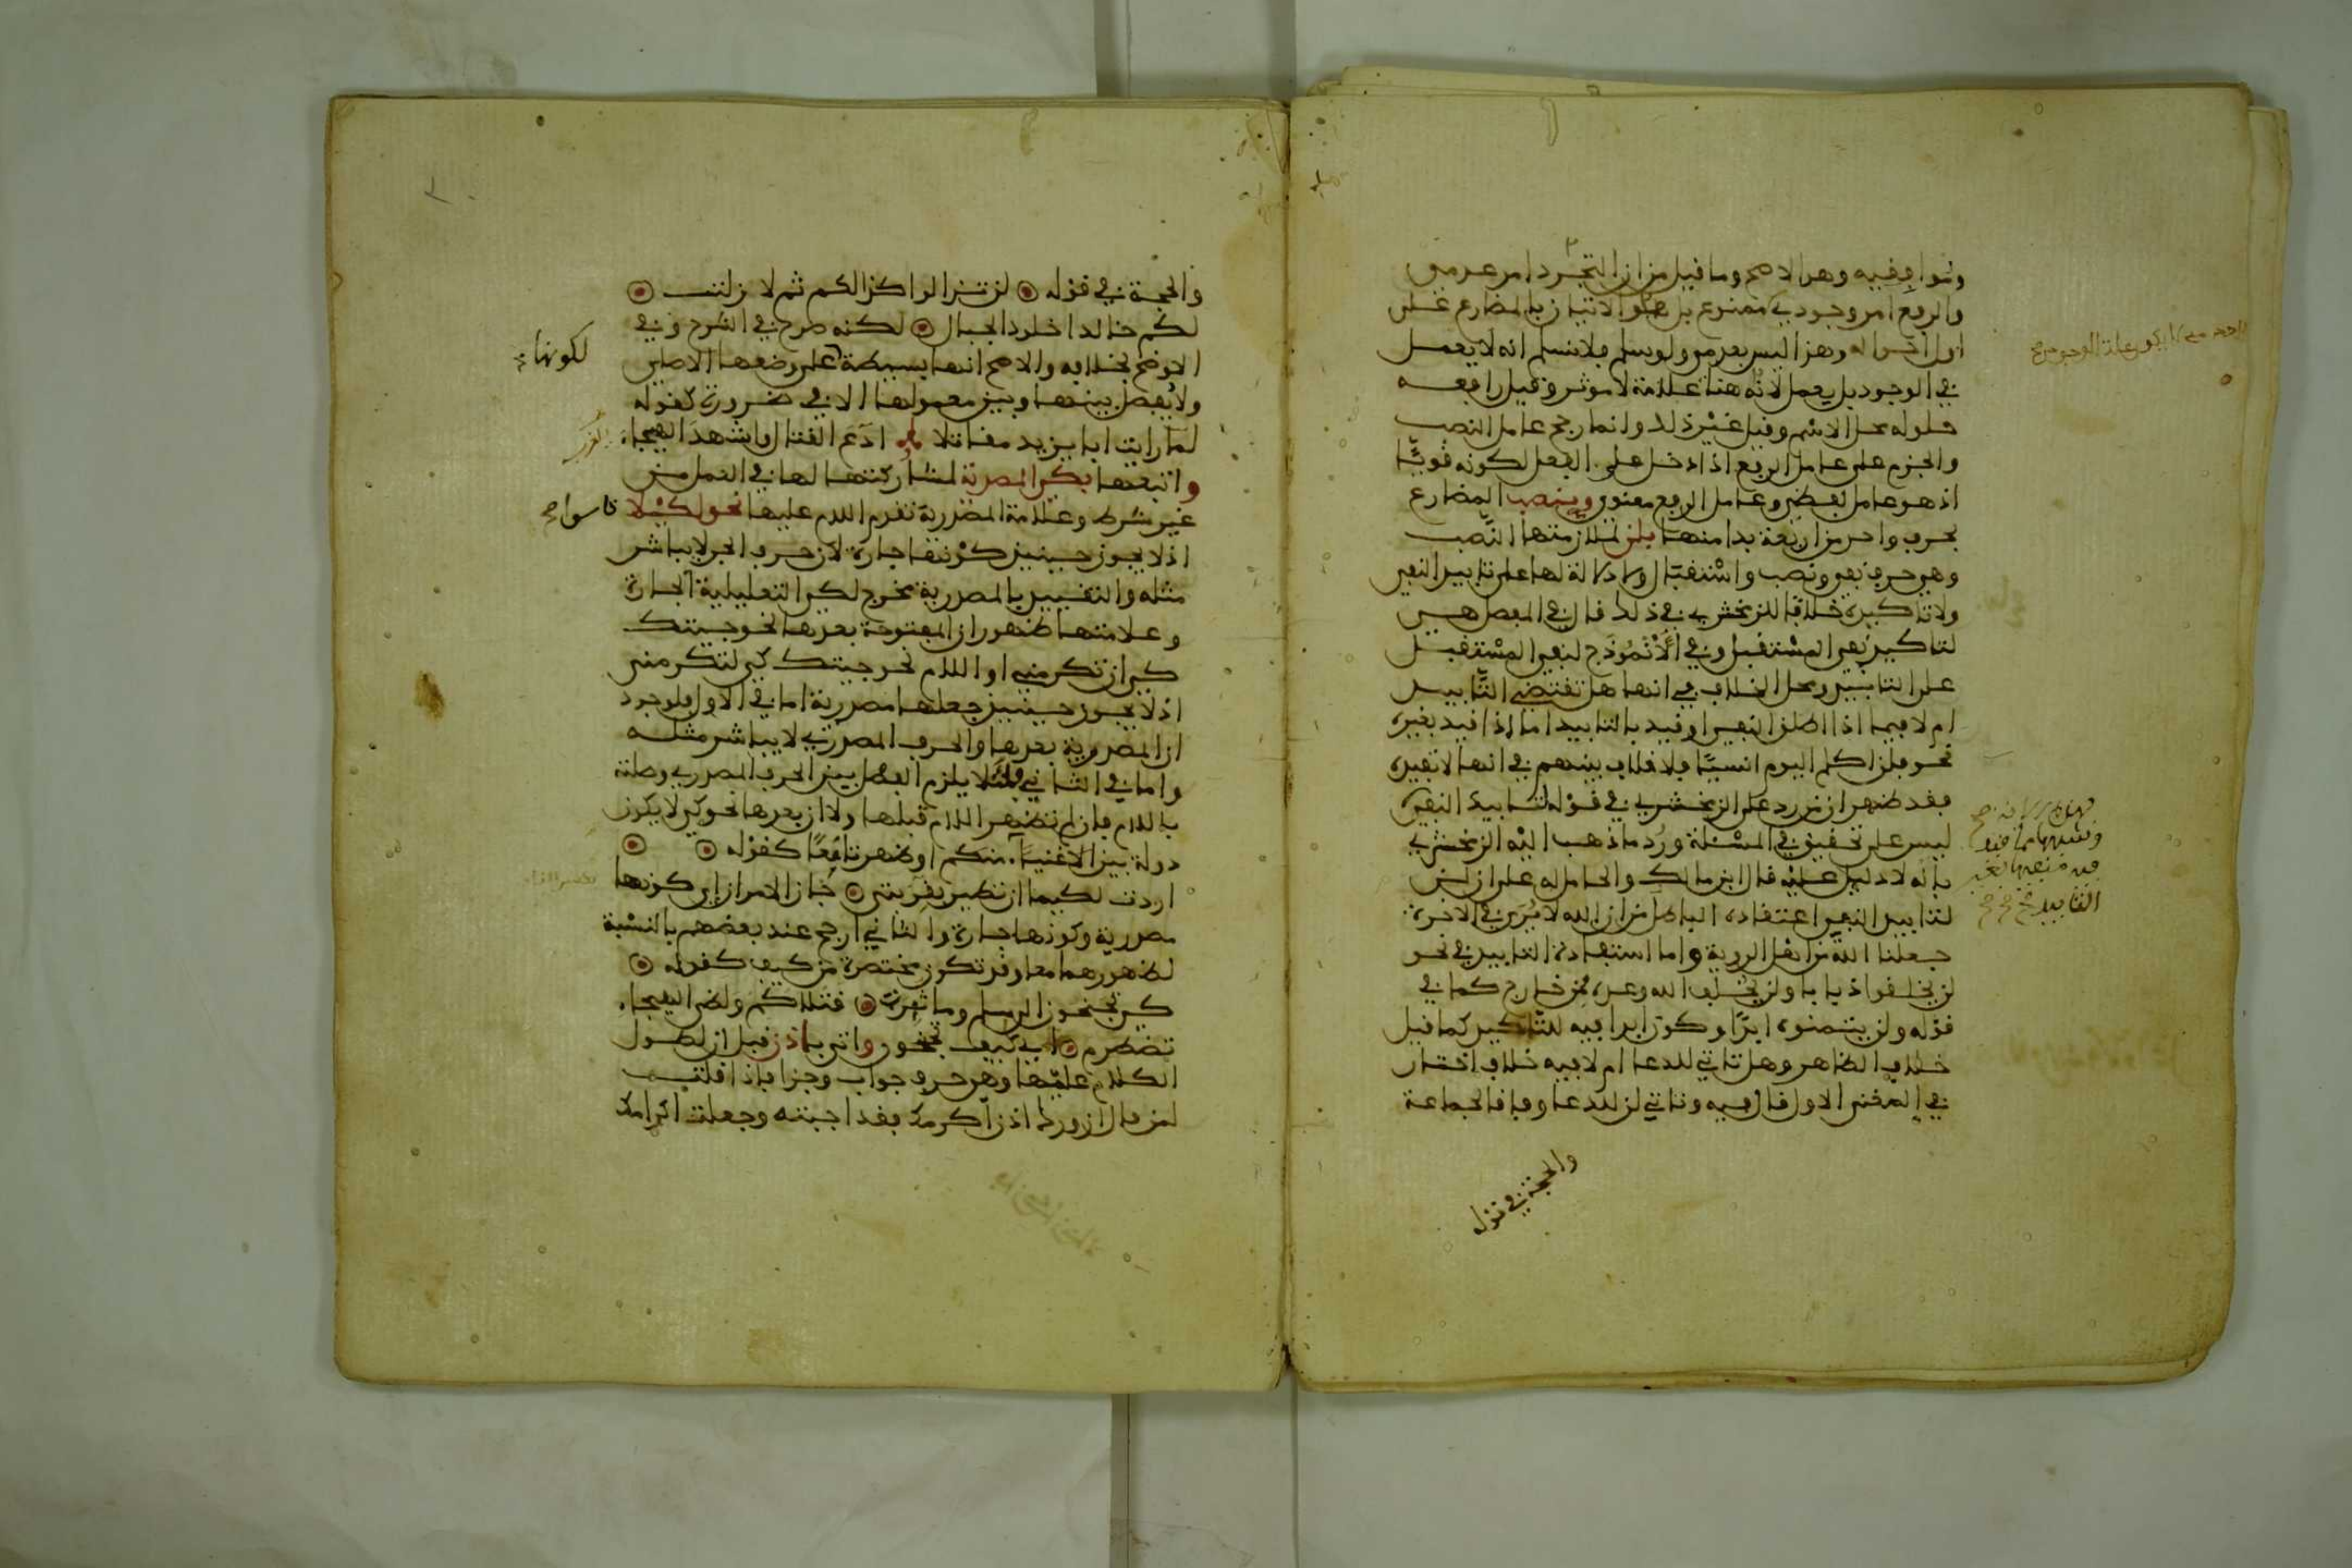 وموافقيه وهو الاصح وما قيل من ان التجرد امر عدمي
والرفع امر وجودي ممنوع بل هو الاتيان بالمضارع على
اول احواله وهذا ليس بعدمي ولو سلم فلا نسلم انه لا يعمل
في الوجود بل يعمل لانه هنا علامة لا موثر وقيل رافعه
حلوله محل الاسم وقيل غير ذلك وانما رجح عامل النصب
والجزم على عامل الرفع اذا دخل على الفعل لكونه قويا
اذ هو عامل لفظي وعامل الرفع معنوي وينصب المضارع
بحرف واحد من اربعة بدا منها بلن لملازمتها النصب
وهو حرف نفي ونصب واستقبال ولا دلالة لها على تابيد النفي
ولا تاكيده خلافا للزمخشري في ذلك قال في المفصل هي
لتاكيد نفي المستقبل وفي الأنموذج لنفي المستقبل
على التابيد ومحل الخلاف في انها هل تقتضي التابيد
ام لا فيما اذا اطلق النفي او قيد بالتابيد اما اذا قيد بغيره
نحو فلن اكلم اليوم انسيا فلا خلاف بينهم في انها لا تفيده
فقد ظهر ان من رد على الزمخشري في قوله لتابيد النفي
ليس على تحقيق في المسئلة ورد ما ذهب اليه الزمخشري
بانه لا دليل عليه قال ابن مالك والحامل له على ان لن
لتابيد النفي اعتقاده الباطل من ان الله لا يرى في الاخرة
جعلنا الله من اهل الروية واما استفادة التابيد في نحو
لن يخلقوا ذبابا ولن يخلف الله وعده فمن خارج كما في
قوله ولن يتمنوه ابدا وكون ابدا فيه للتاكيد كما قيل
خلاف الظاهر وهل تاتي للدعا ام لا فيه خلاف اختار
في المغني الاول قال فيه وتاتي لن للدعا وفاقا لجماعة
والحجة في قوله
والحجة في قوله لن تزالوا كذالكم ثم لا زلت
لكم خالدا خلود الجبال لكنه صرح في الشرح وفي
الاوضح بخلافه والاصح انها بسيطة على وضعها الاصلي
لكونها
ولا يفصل بينها وبين معمولها الا في ضرورة كقوله
لما رايت ابا يزيد مقاتلا ادع القتال واشهد الهيجاء
واتبعها بكي المصرية لمشاركتها لها في العمل من
غير شرط وعلامة المصدرية تقدم اللام عليها نحو لكيلا تاسوا
اذ لا يجوز حينيذ كونها جارة لان حرف الجر لا يباشر
مثله والتقييد بالمصدرية مخرج لكي التعليلية الجارة
وعلامتها ظهور ان المفتوحة بعدها نحو جيتك
كي ان تكرمني او اللام نحو جيتك كي لتكرمني
اذ لا يجوز حينيذ جعلها مصدرية اما في الاول فلوجود
ان المصدرية بعدها والحرف المصدري لا يباشر مثله
واما في الثاني فلئلا يلزم الفصل بين الحرف المصدري وصلته
باللام فان لم تظهر اللام قبلها ولا ان بعدها نحو كي لا يكون
دولة بين الاغنياء منكم او ظهرتا معا كقوله
اردت لكيما ان تطير بقربتي جاز الامران اي كونها
مصدرية وكونها جارة والثاني ارجح عند بعضهم بالنسبة
لظهورهما معا وقد تكون مختصرة من كيف كقوله
كي تجنحون الى سلم وما ثئرت قتلاكم ولظى الهيجاء
تضطرم اي كيف تجنحون واتى باذن قبل ان لطول
الكلام عليها وهو حرف جواب وجزا فاذا قلت
لمن قال ازورك اذن اكرمك فقد اجبته وجعلت اكرامك